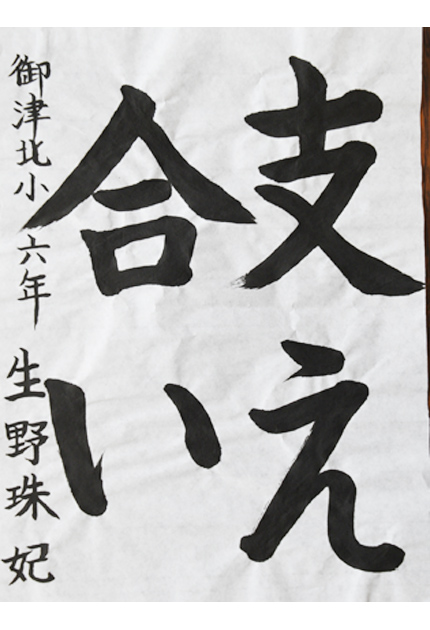 支え
合い
御津北小 六年 生野珠妃